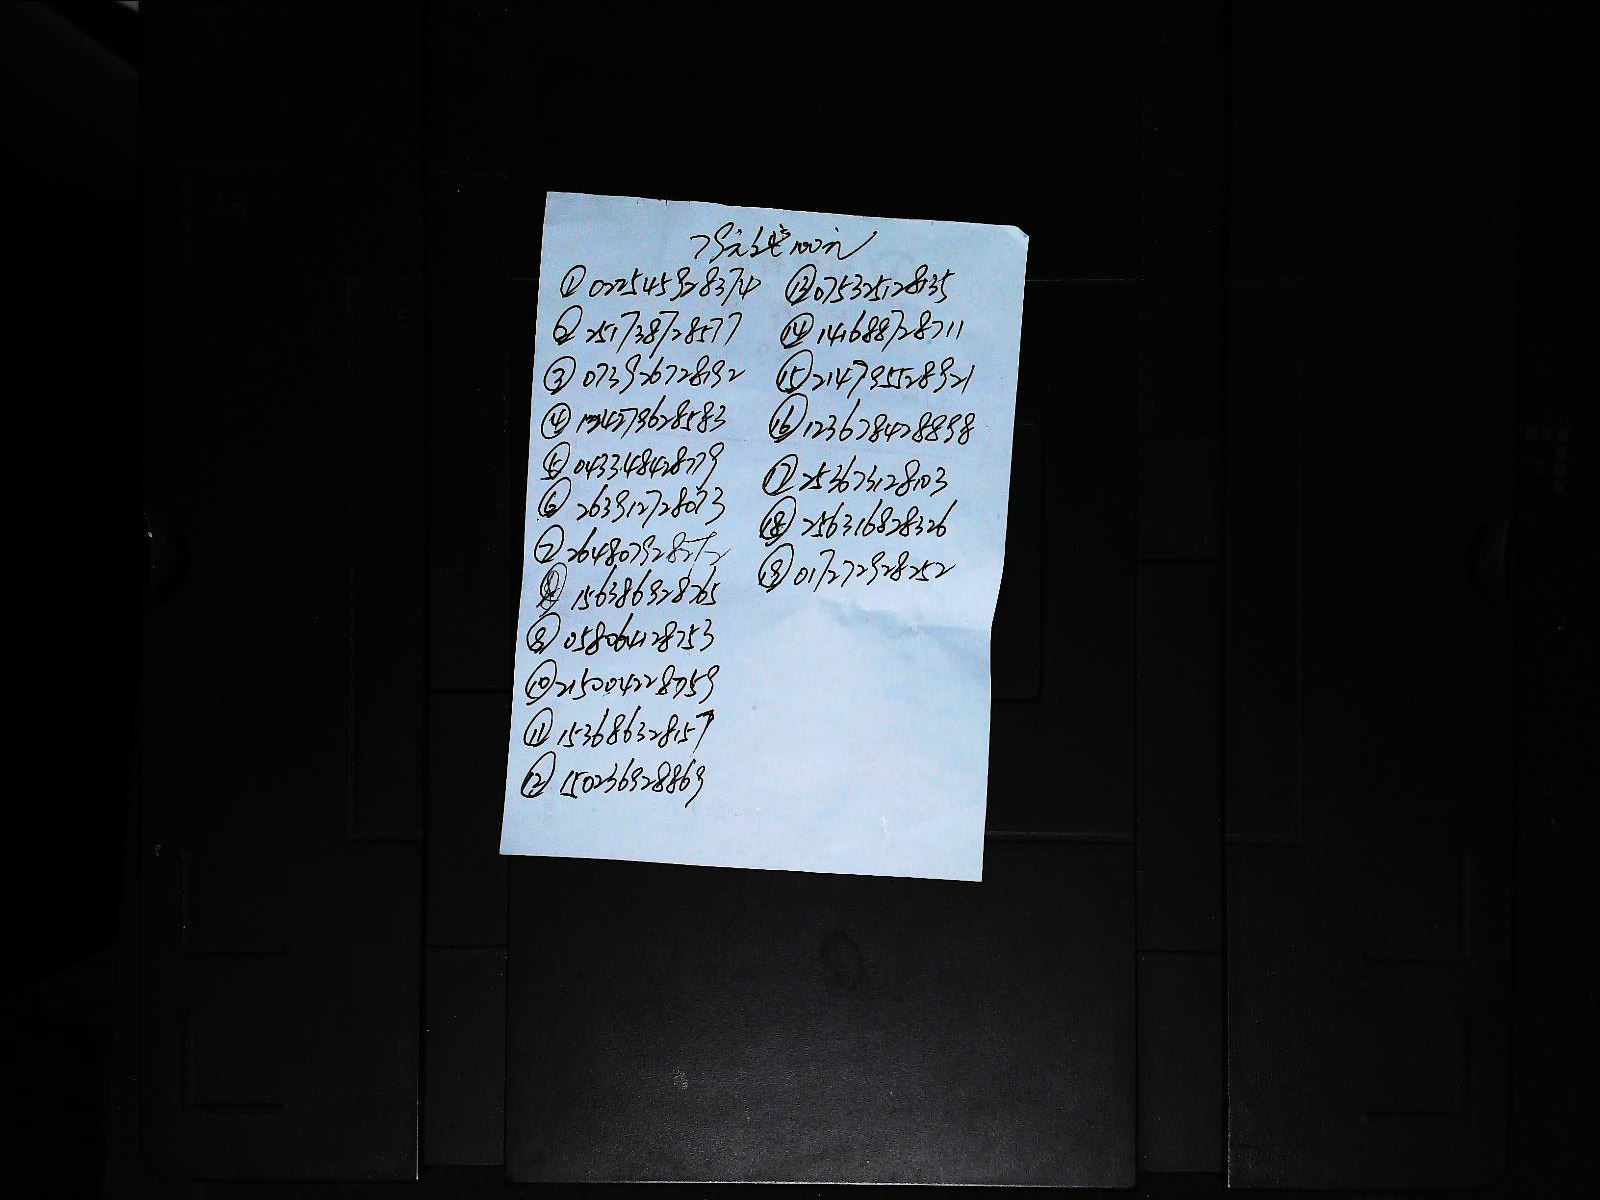 ① 022545928374
② 251738728577
③ 073926728192
④ 134279628583
⑤ 043348428779
⑥ 263912728073
⑦ 264807928272
156386928765
058064128753
⑩ 215004228759
⑪ 153686328157
⑫ 150236928869
⑬ 075325128135
⑭ 141688728711
⑮ 214795528921
⑯ 123678428898
⑰ 253673128103
⑱ 256316828326
⑲ 017272928252